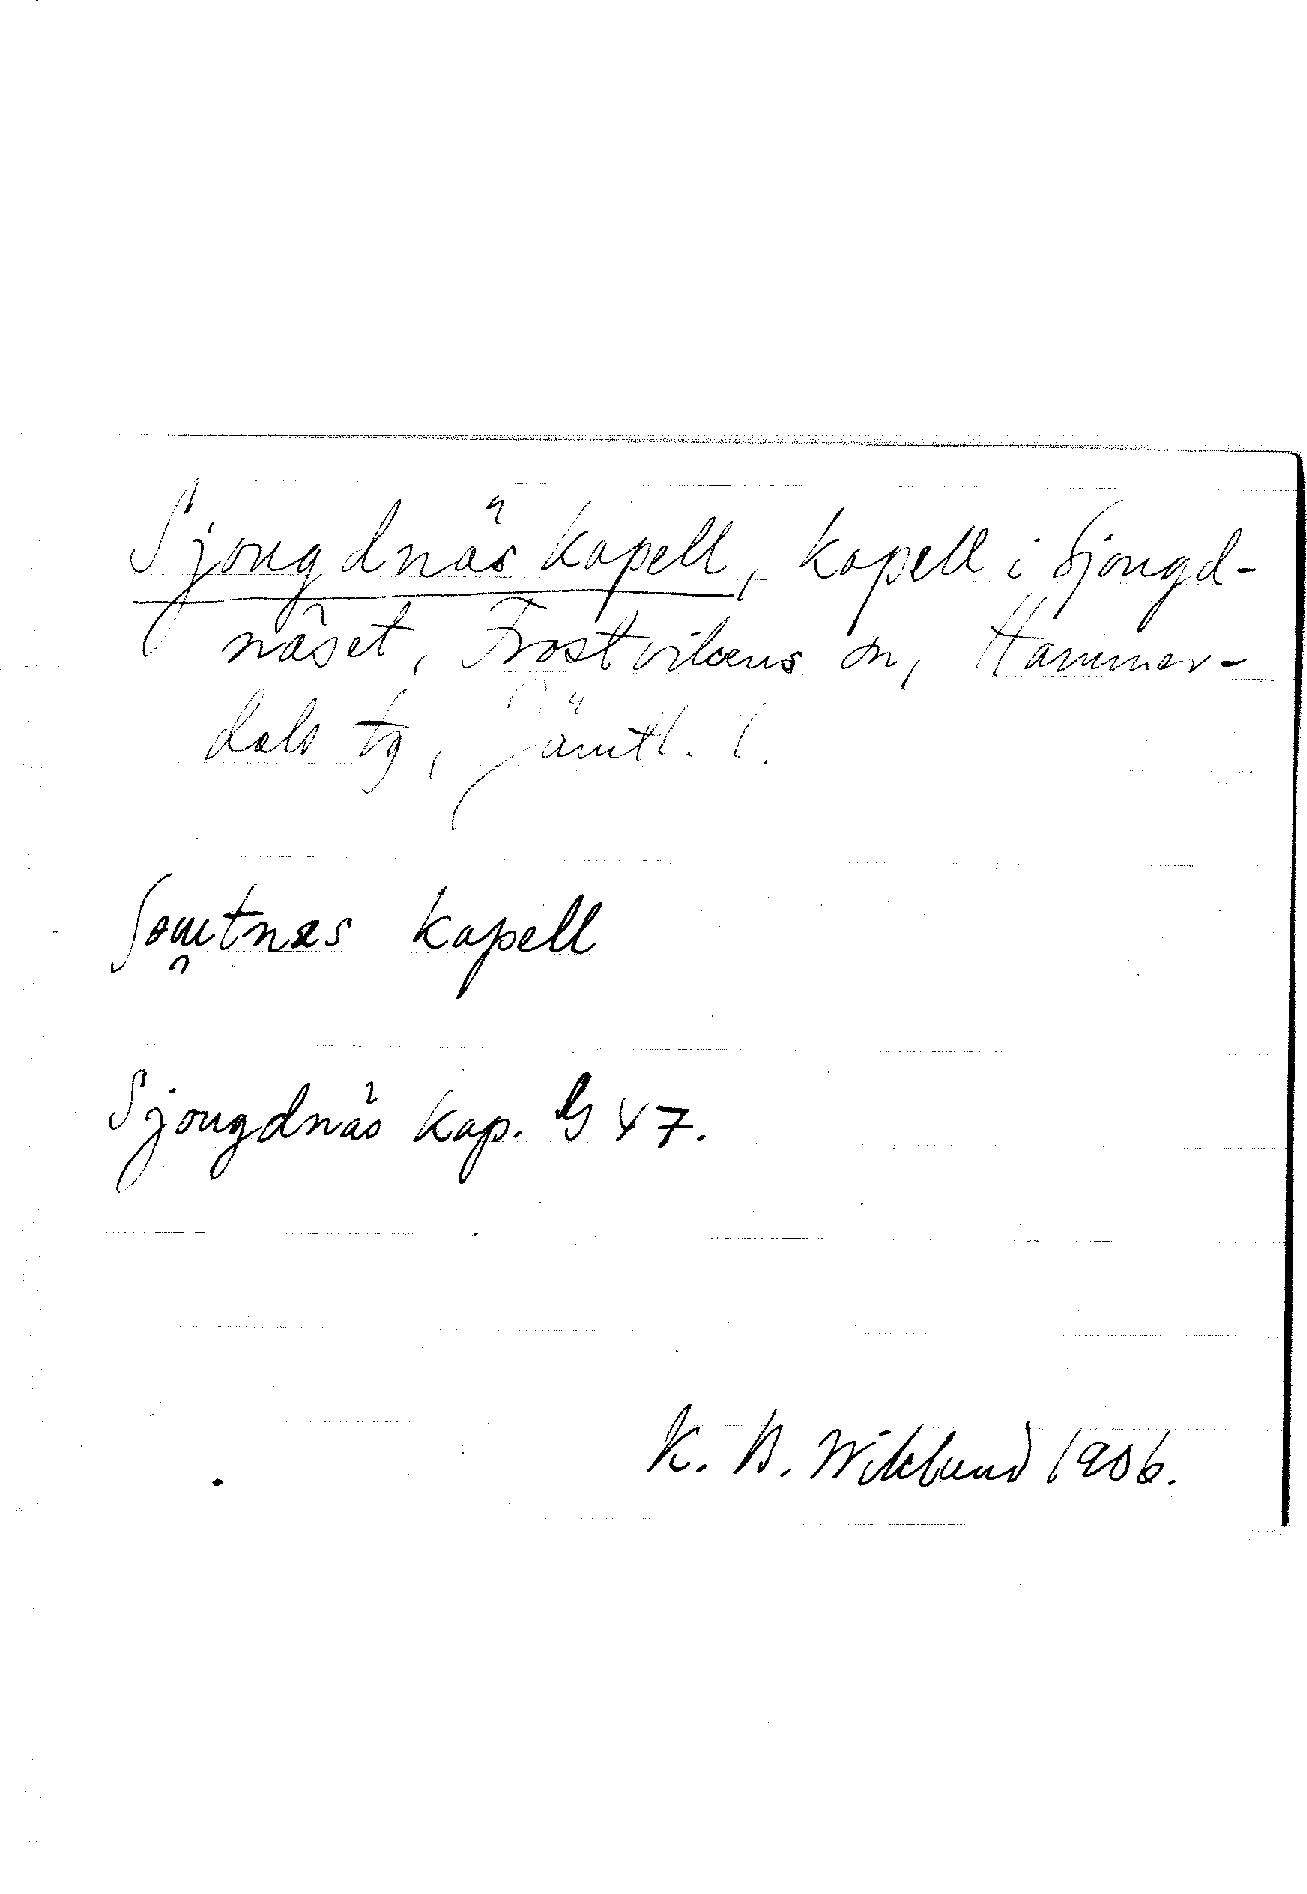 Sjougdnäs kapell, kapell i Sjougd-
näset, Frostvikens sn, Hammer-
dals tg, Jämtl. l.
kapell
Sjougdnäs kap. G 47.
K. B. Wiklund 1906.